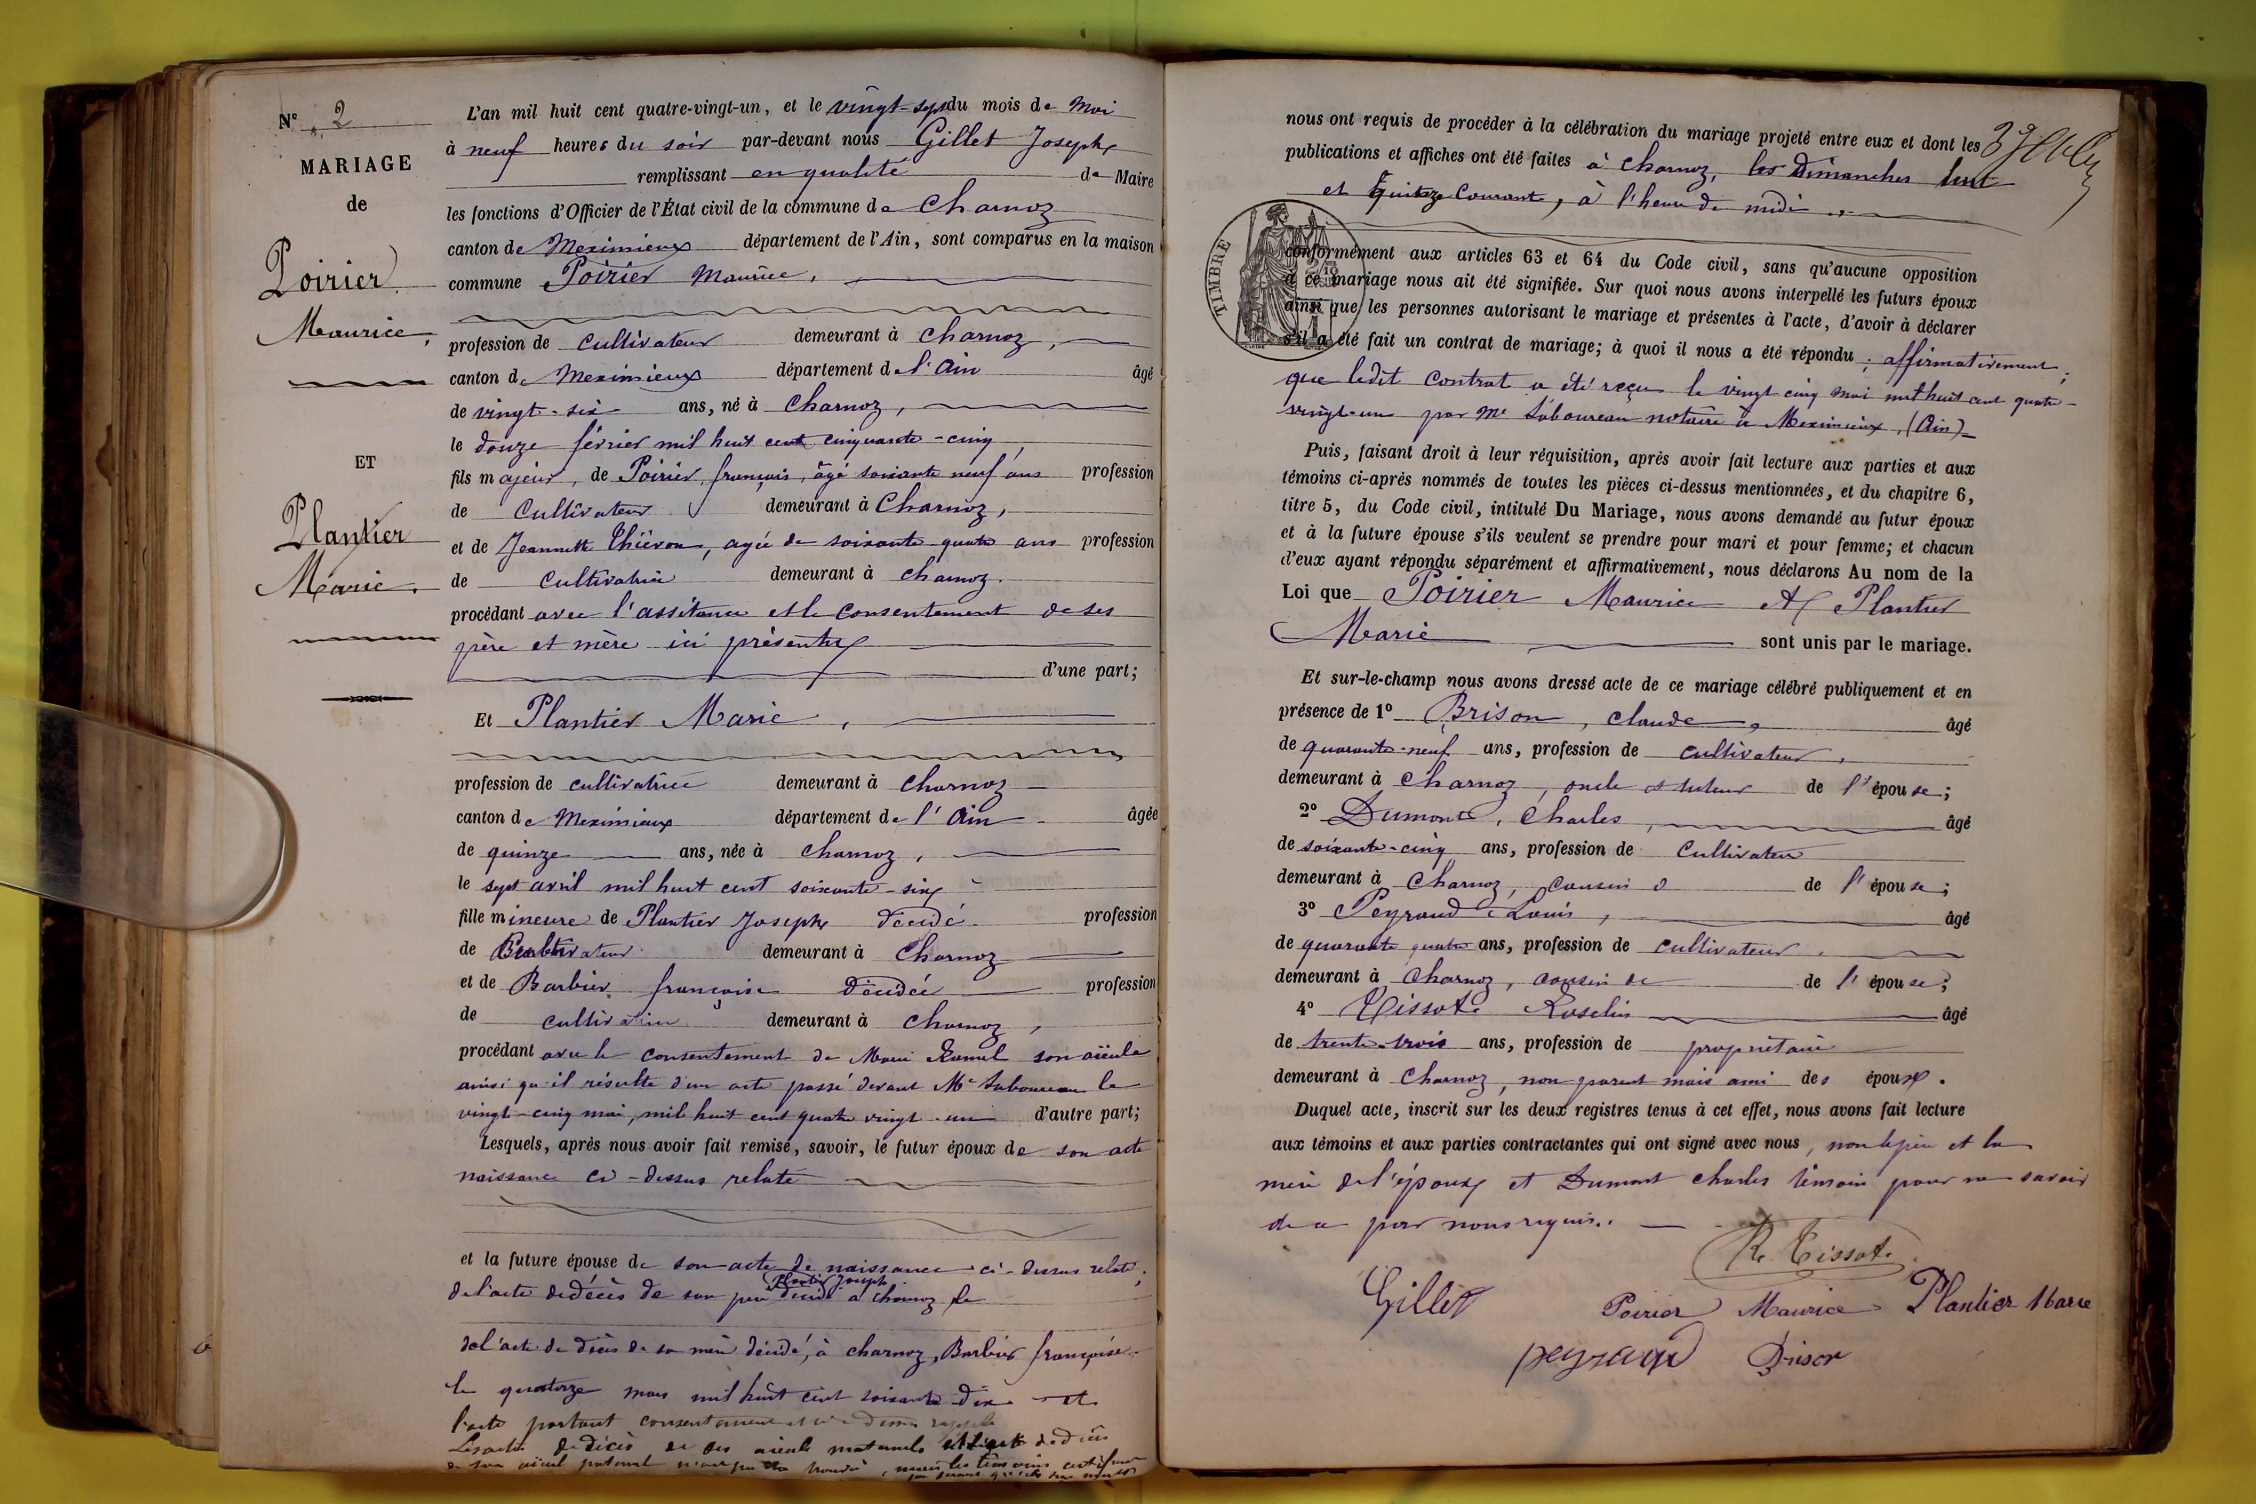 N° 2
MARIAGE
de
Poirier
Maurice,
ET
Plantier
Marie.
L'an mil huit cent quatre-vingt-un, et le vingt-sept du mois de Mai
à neuf heures du soir par-devant nous Gillet Joseph
remplissant en qualité de Maire
les fonctions d'Officier de l'État civil de la commune de Charnoz
canton de Meximieux département de l'Ain, sont comparus en la maison
commune Poirier Maurice,
profession de cultivateur demeurant à Charnoz,
canton de Meximieux département de l'Ain âgé
de vingt-six ans, né à Charnoz,
le douze février mil huit cent cinquante-cinq,
fils majeur, de Poirier, françois, âgé soixante neuf ans profession
de Cultivateur demeurant à Charnoz,
et de Jeannette, agée de soixante quatre ans profession
de Cultivatrice demeurant à charnoz.
procédant avec l'assitance et le consentement de ses
père et mère ici présents
d'une part;
Et Plantier Marie,
profession de cultivatrice demeurant à Charnoz
canton de Meximieux département de l'Ain âgée
de quinze ans, née à Charnoz,
le sept avril mil huit cent soixante-six
fille mineure de Plantier Joseph décédé profession
de Cultivateur demeurant à Charnoz
et de Barbier françoise décédée profession
de cultivatrice demeurant à Charnoz,
procédant avec le consentement de Marie son aïeule
ainsi qu'il résulte d'un acte passé devant Me Laboureau le
vingt-cinq mai, mil huit cent quatre vingt-un d'autre part;
Lesquels, après nous avoir fait remise, savoir, le futur époux de son acte
naissance ci-dessus relaté
et la future épouse de son acte de naissance ci-dessus relaté;
Plantier Joseph
de l'acte de décès de son père décédé à Charnoz le
de l'acte de décès de sa mère décédé, à charnoz, Barbier françoise
le quatorze mars mil huit cent soixante-dix et
l'acte portant consentement ci-dessus
Les actes de décès de ses aïeuls maternels de décès
de son aïeul paternel les témoins
nous ont requis de procéder à la célébration du mariage projeté entre eux et dont les
publications et affiches ont été faites à Charnoz, les Dimanches huit
et quinze Courant, à l'heure de midi,
TIMBRE
conformément aux articles 63 et 64 du Code civil, sans qu'aucune opposition
à ce mariage nous ait été signifiée. Sur quoi nous avons interpellé les futurs époux
ainsi que les personnes autorisant le mariage et présentes à l'acte, d'avoir à déclarer
s'il a été fait un contrat de mariage; à quoi il nous a été répondu; affirmativement;
que ledit Contrat a été reçu le vingt cinq mai mil huit cent quatre-
vingt-un par Me Laboureau notaire à Meximieux, (Ain)
Puis, faisant droit à leur réquisition, après avoir fait lecture aux parties et aux
témoins ci-après nommés de toutes les pièces ci-dessus mentionnées, et du chapitre 6,
titre 5, du Code civil, intitulé Du Mariage, nous avons demandé au futur époux
et à la future épouse s'ils veulent se prendre pour mari et pour femme; et chacun
d'eux ayant répondu séparément et affirmativement, nous déclarons Au nom de la
Loi que Poirier Maurice Et Plantier
Marie sont unis par le mariage.
Et sur-le-champ nous avons dressé acte de ce mariage célébré publiquement et en
présence de 1° Brison, Claude, âgé
de quarante-neuf ans, profession de cultivateur,
demeurant à Charnoz, oncle et tuteur de l'épouse;
2° Dumont, Charles, âgé
de soixante-cinq ans, profession de Cultivateur
demeurant à Charnoz, cousin de l'épouse;
3° Peyraud Louis, âgé
de quarante quatre ans, profession de cultivateur.
demeurant à Charnoz, cousin de de l'épouse;
4° Tissot Roselin âgé
de trente-trois ans, profession de propriétaire
demeurant à Charnoz, non parent mais ami des époux.
Duquel acte, inscrit sur les deux registres tenus à cet effet, nous avons fait lecture
aux témoins et aux parties contractantes qui ont signé avec nous, non le père et la
mère de l'époux et Dumont Charles témoin pour ne savoir
de ce par nous requis.
R. Tissot
Gillet Poirier Maurice Plantier Marie
peyraud Brison